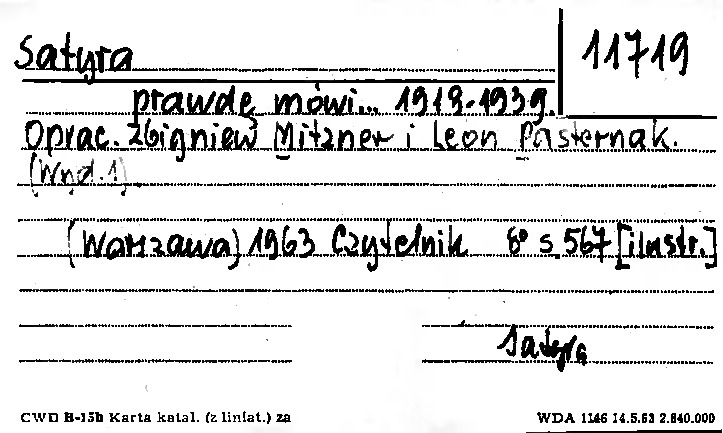 Satyra 11719
prawdę mówi... 1918-1939.
Oprac. Zbigniew Mitzner i Leon Pasternak.
(Wyd. 1)
(Warszawa) 1963 Czytelnik 8° s. 567 [ilustr.]
Satyra
CWD B-15b Karta katal. (z liniat.) za WDA 1146 14.5.63 2.840.000